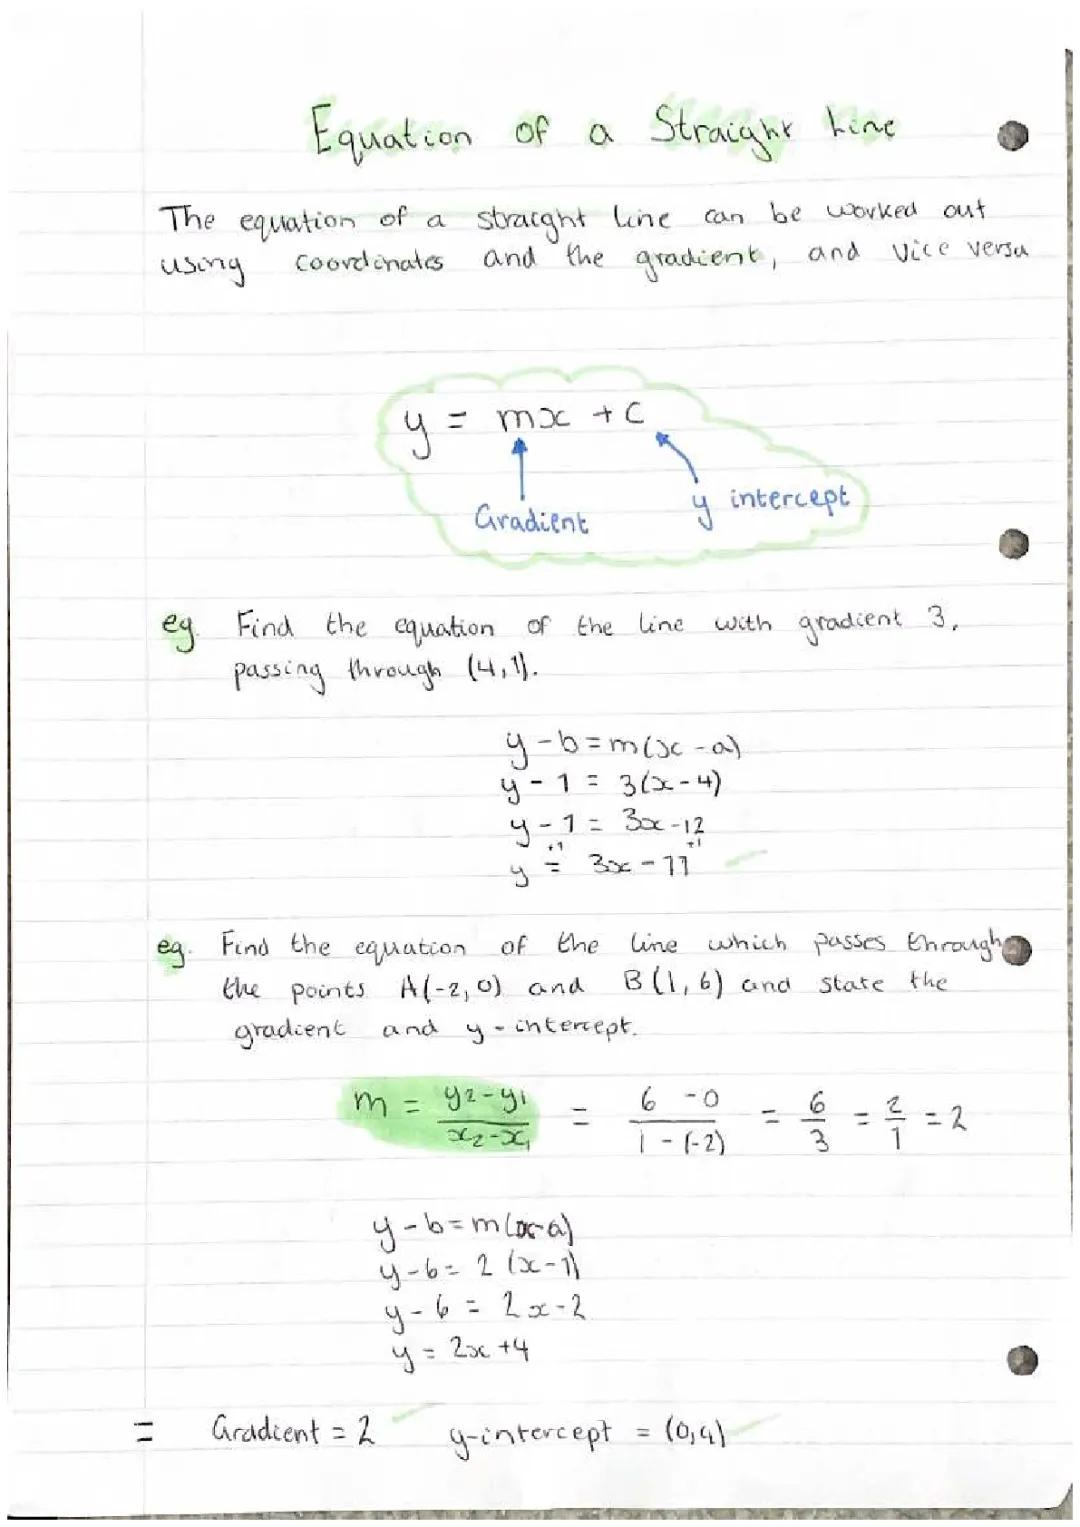 Equation of a Straight Line
The equation of a straight line can be worked out
using coordinates and the gradient, and vice versa
y = mx + c
Gradient
y intercept
eg. Find the equation of the line with gradient 3,
passing through (4,1).
y - b = m(x - a)
y - 1 = 3(x - 4)
y - 1 = 3x - 12
+1 +1
y = 3x - 11
eg. Find the equation of the line which passes through
the points A(-2, 0) and B(1, 6) and state the
gradient and y-intercept.
m = y2-y1/x2-x1 = 6 - 0/1 - (-2) = 6/3 = 2/1 = 2
y - b = m(x-a)
y - 6 = 2(x-1)
y - 6 = 2x - 2
y = 2x + 4
= Gradient = 2 y-intercept = (0,4)